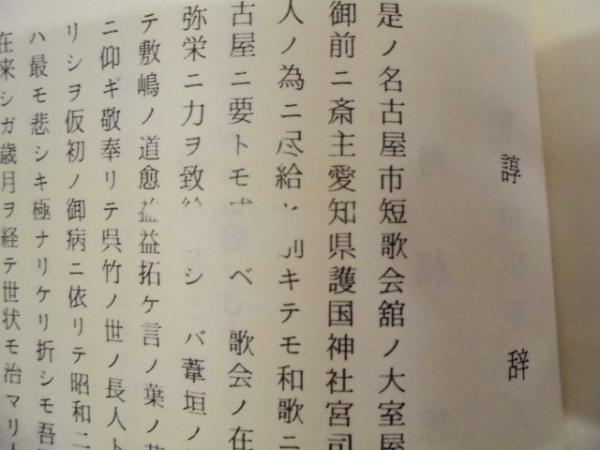 諄辞
是ノ名古屋市短歌会舘ノ大室屋
御前ニ斎主愛知県護国神社宮司
人ノ為ニ尽給 別キテモ和歌ニ
古屋ニ要トモ ベ歌会ノ在
弥栄ニ力ヲ致 シバ葦垣ノ
テ敷嶋ノ道愈益益拓ケ言ノ葉ノ
ニ仰ギ敬奉リテ呉竹ノ世ノ長人ト
リシヲ仮初ノ御病ニ依リテ昭和二
ハ最モ悲シキ極ナリケリ折シモ吾
在来シガ歳月ヲ経テ世状モ治マリ